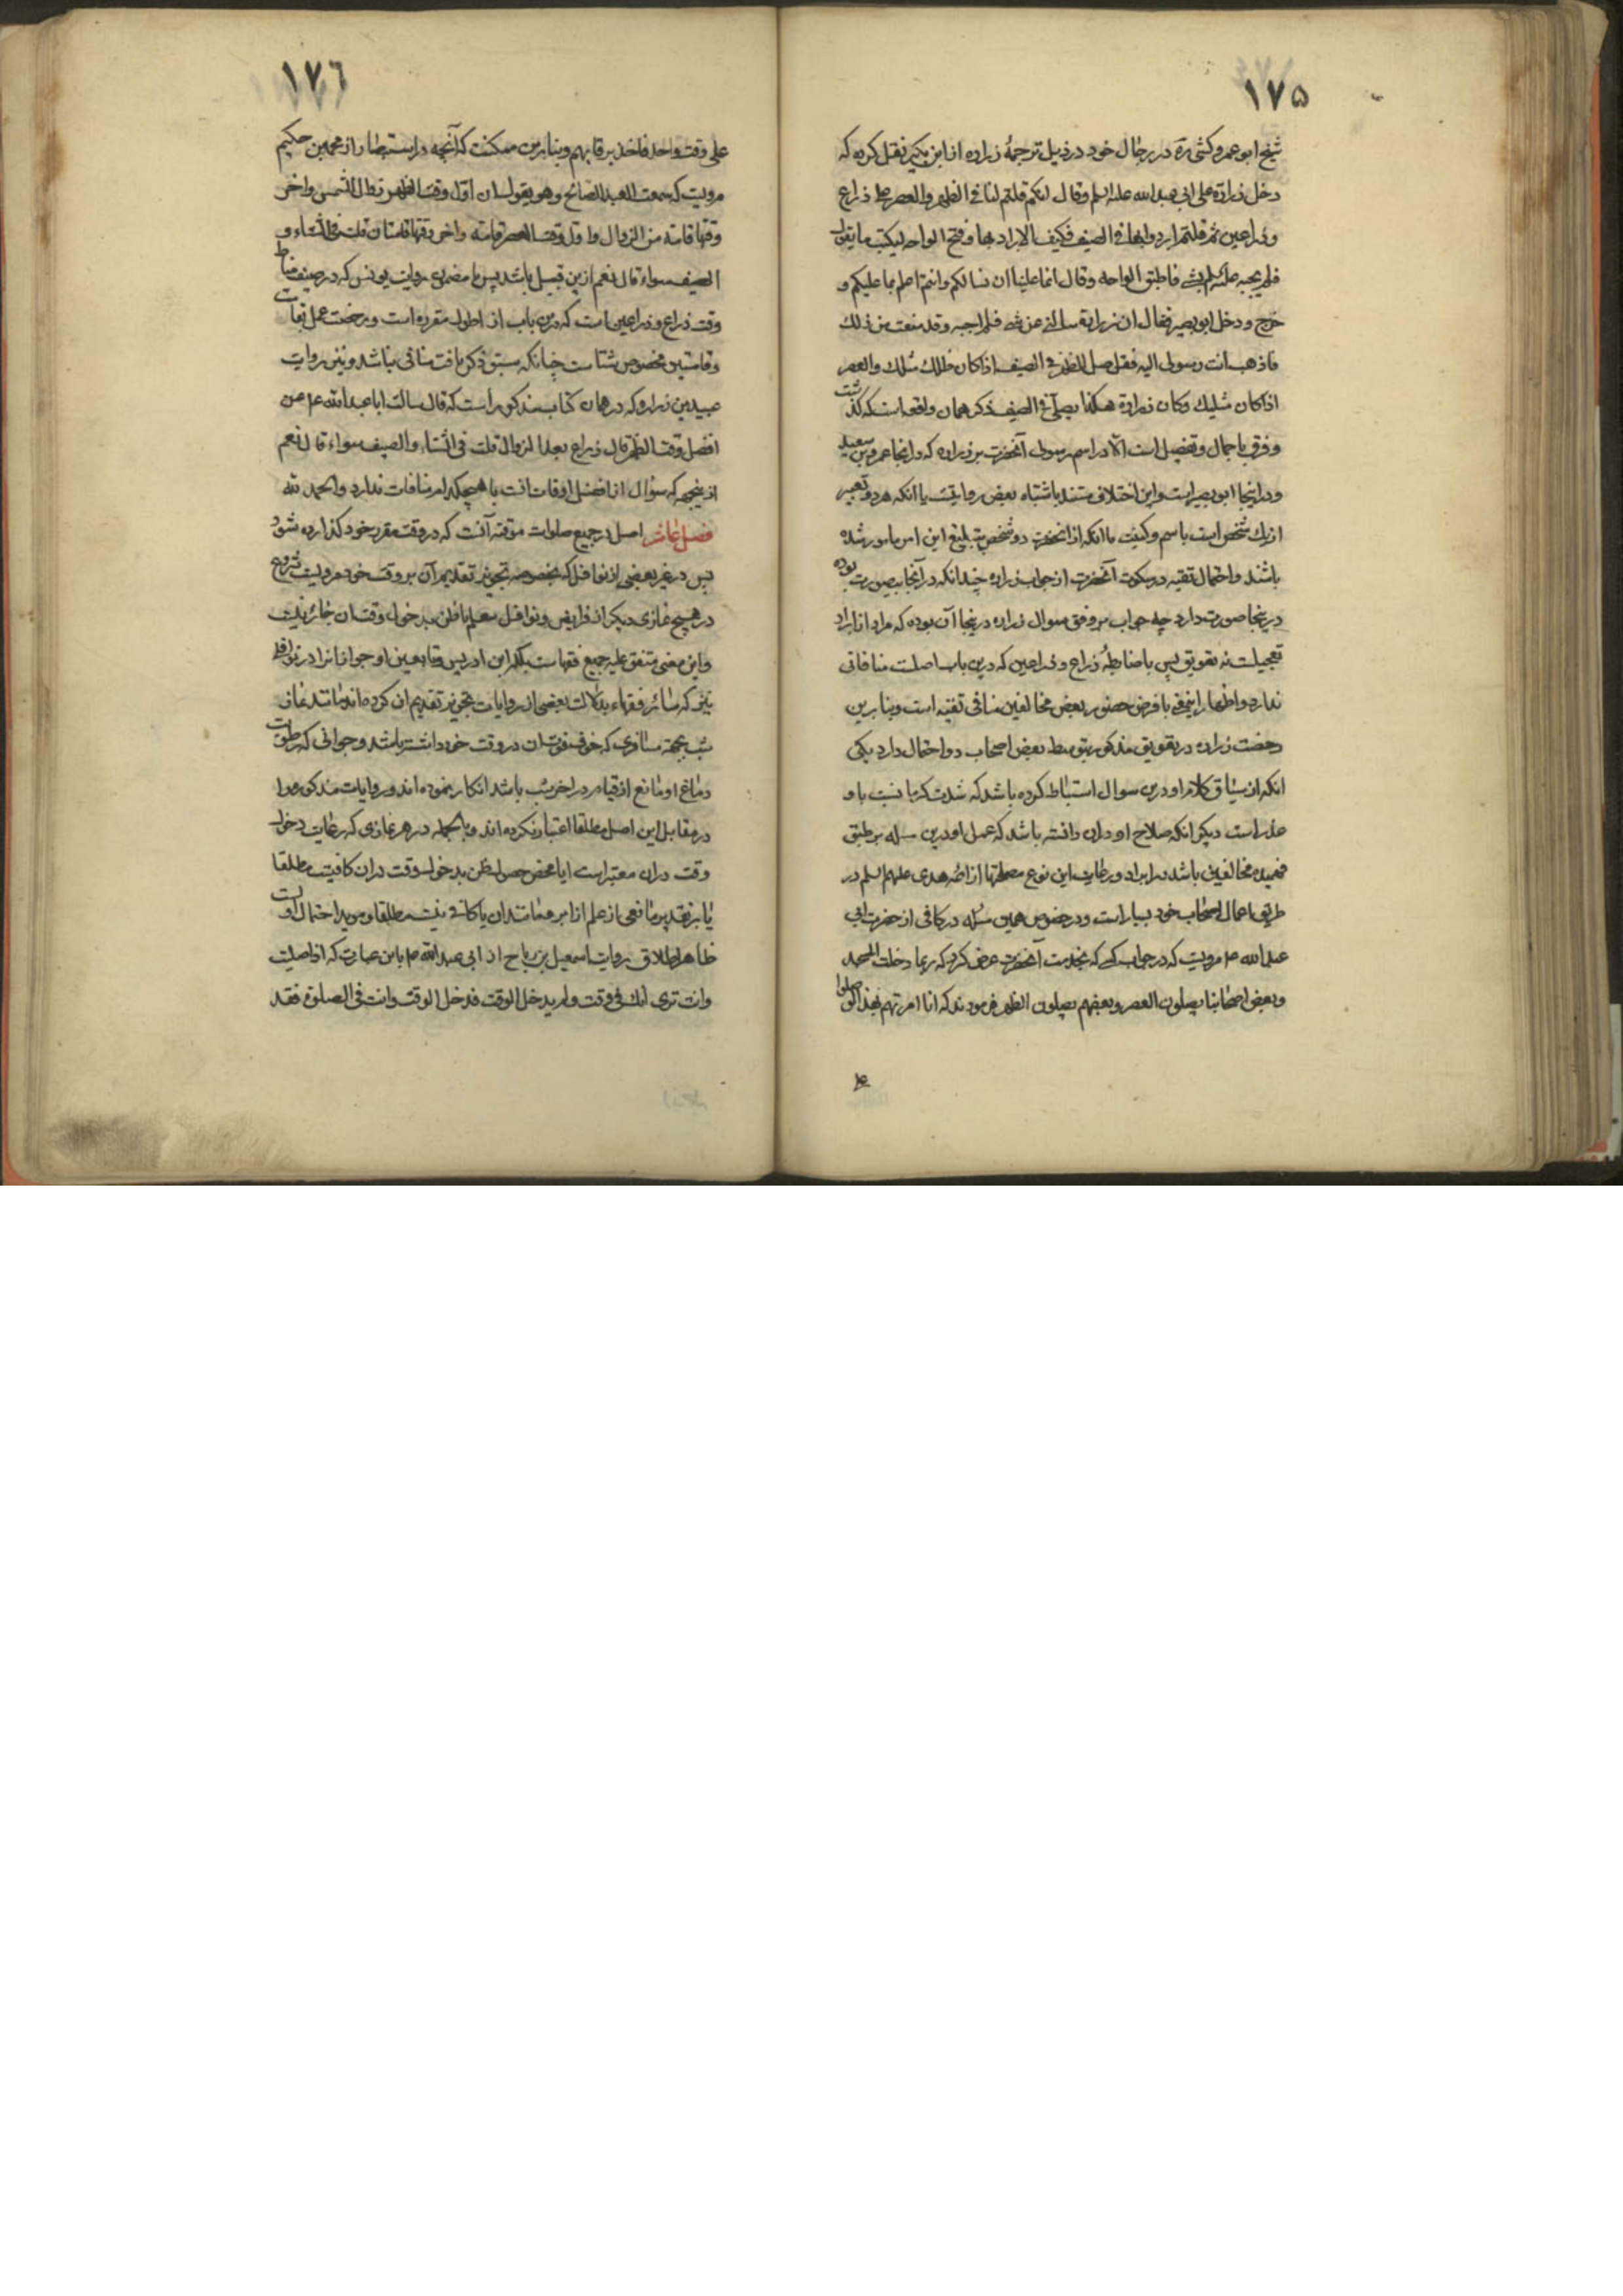 ١٧٥
شیخ ابو عمرو کشی ره در رجال خود در ذیل ترجمهٔ زراره از ابن بکیر نقل کرده که
دخل زرارة علی ابی عبدالله علیه السلم وقال انکم قلتم لنا فی الظهر والعصر علی ذراع
وذراعین ثم قلتم ابردوا بها فی الصیف فکیف الابراد بها وفتح الواحه لیکتب ما یقول
فلم یجبه علیه السلم بشی فاطبق الواحه وقال انما علینا ان نسالکم وانتم اعلم بما علیکم و
خرج ودخل ابو بصیر فقال ان زرارة سالنی عن شی فلم اجبه وقد ضقت من ذلک
فاذهب انت رسولی الیه فقل صل الظهر فی الصیف اذا کان ظلک مثلک والعصر
اذا کان مثلیک وکان زرارة هکذا یصلی فی الصیف ذکر همان واقعه است که گذشت
وفرق باجمال وتفصیل است الا در اسم رسول آنحضرت بر زراره که در انجا عمرو بن سعید
ودر اینجا ابو بصیر است واین اختلاف مستند باشتباه بعض رواتست یا انکه هر دو تعبیر
از یک شخص است باسم وکنیت یا انکه از انحضرت دو شخص بتبلیغ این امر مامور شده
باشند واحتمال تقیه در سکوت آنحضرت از جواب زراره چندانکه در آنجا بیصورت بوده
در ینجا صورت دارد چه جواب بر وفق سوال زراره در ینجا آن بوده که مراد از ابراد
تعجیلست نه تعویق پس با ضابطهٔ ذراع وذراعین که درین باب اصلست منافاتی
ندارد واظهار اینمعنی با فرض حضور بعض مخالفین منافی تقیه است وبنابرین
رخصت زراره در تعویق مذکور بتوسط بعض اصحاب دو احتمال دارد یکی
انکه از سیاق کلام او درین سوال استنباط کرده باشد که شدت گرما نسبت باو
عذر است دیگر انکه صلاح او دران دانسته باشد که عمل او درین مسله بر طبق
فهمیده مخالفین باشد در ابراد ورعایت این نوع مصلحتها از ائمه هدی علیهم السلم در
طریق اعمال اصحاب خود بسیار است ودر خصوص همین مسئله در کافی از حضرت ابی
عبدالله ع مرویست که در جواب کسی که بخدمت آنحضرت عرض کرد که ربما دخلت المسجد
وبعض اصحابنا یصلون العصر وبعضهم یصلون الظهر فرمودند که انا امرتهم بهذا لو صلوا
١٧٦
علی وقت واحد فاخذ برقابهم وبنابرین ممکنست که آنچه در استبصار از محمد بن حکیم
مرویست که سمعت العبد الصالح وهو یقول ان اول وقت الظهر زوال الشمس واخر
وقتها قامة من الزوال واول وقت العصر قامة واخر وقتها قامتان قلت فی الشتاء و
الصیف سواء قال نعم ازین قبیل باشد پس با مضمون روایت یونس که در صیف مناط
وقت ذراع وذراعین است که درین باب از اطول مقرره است ورخصت عمل بقامت
وقامتین مخصوص شتاست چنانکه سبق ذکر یافت منافی نباشد ونیز روایت
عبید بن زراره که در همان کتاب مذکور است که قال سالت ابا عبدالله ع عن
افضل وقت الظهر قال ذراع بعد الزوال قلت فی الشتاء والصیف سواء قال نعم
ازینجهه که سؤال از افضل اوقاتست با هیچکدام منافات ندارد والحمد لله
فصل عاشر اصل در جمیع صلوات موقته آنست که در وقت مقرر خود گذارده شود
پس در غیر بعضی از نوافل که بخصوصه تجویز تقدیم آن بر وقت خود مرویست شروع
در هیچ نمازی دیگر از فرایض ونوافل بعلم یا ظن بعدم دخول وقت ان جائز نیست
واین معنی متفق علیه جمیع فقهاست بلکه ابن ادریس وتابعین او جواز انرا در نوافل
نیز که سائر فقهاء بدلالت بعضی از روایات تجویز تقدیم ان کرده اند مانند نماز
شب بجهة مسافری که خوف فوت ان در وقت خود داشته باشد وجوانی که رطوبت
دماغ او مانع از قیام در اخر شب باشد انکار نموده اند وروایات مذکوره را
در مقابل این اصل مطلقا اعتبار نکرده اند وبالجمله در هر نمازی که رعایت دخول
وقت دران معتبر است ایا محض حصول ظن بدخول وقت دران کافیست مطلقا
یا بر تقدیر مانعی از علم از ابر ومانند ان یا کافی نیست مطلقا ومؤید احتمال اولست
ظاهر اطلاق روایت اسمعیل بن رباح از ابی عبدالله ع باین عبارت که اذا صلیت
وانت تری انک فی وقت ولم یدخل الوقت فدخل الوقت وانت فی الصلوة فقد